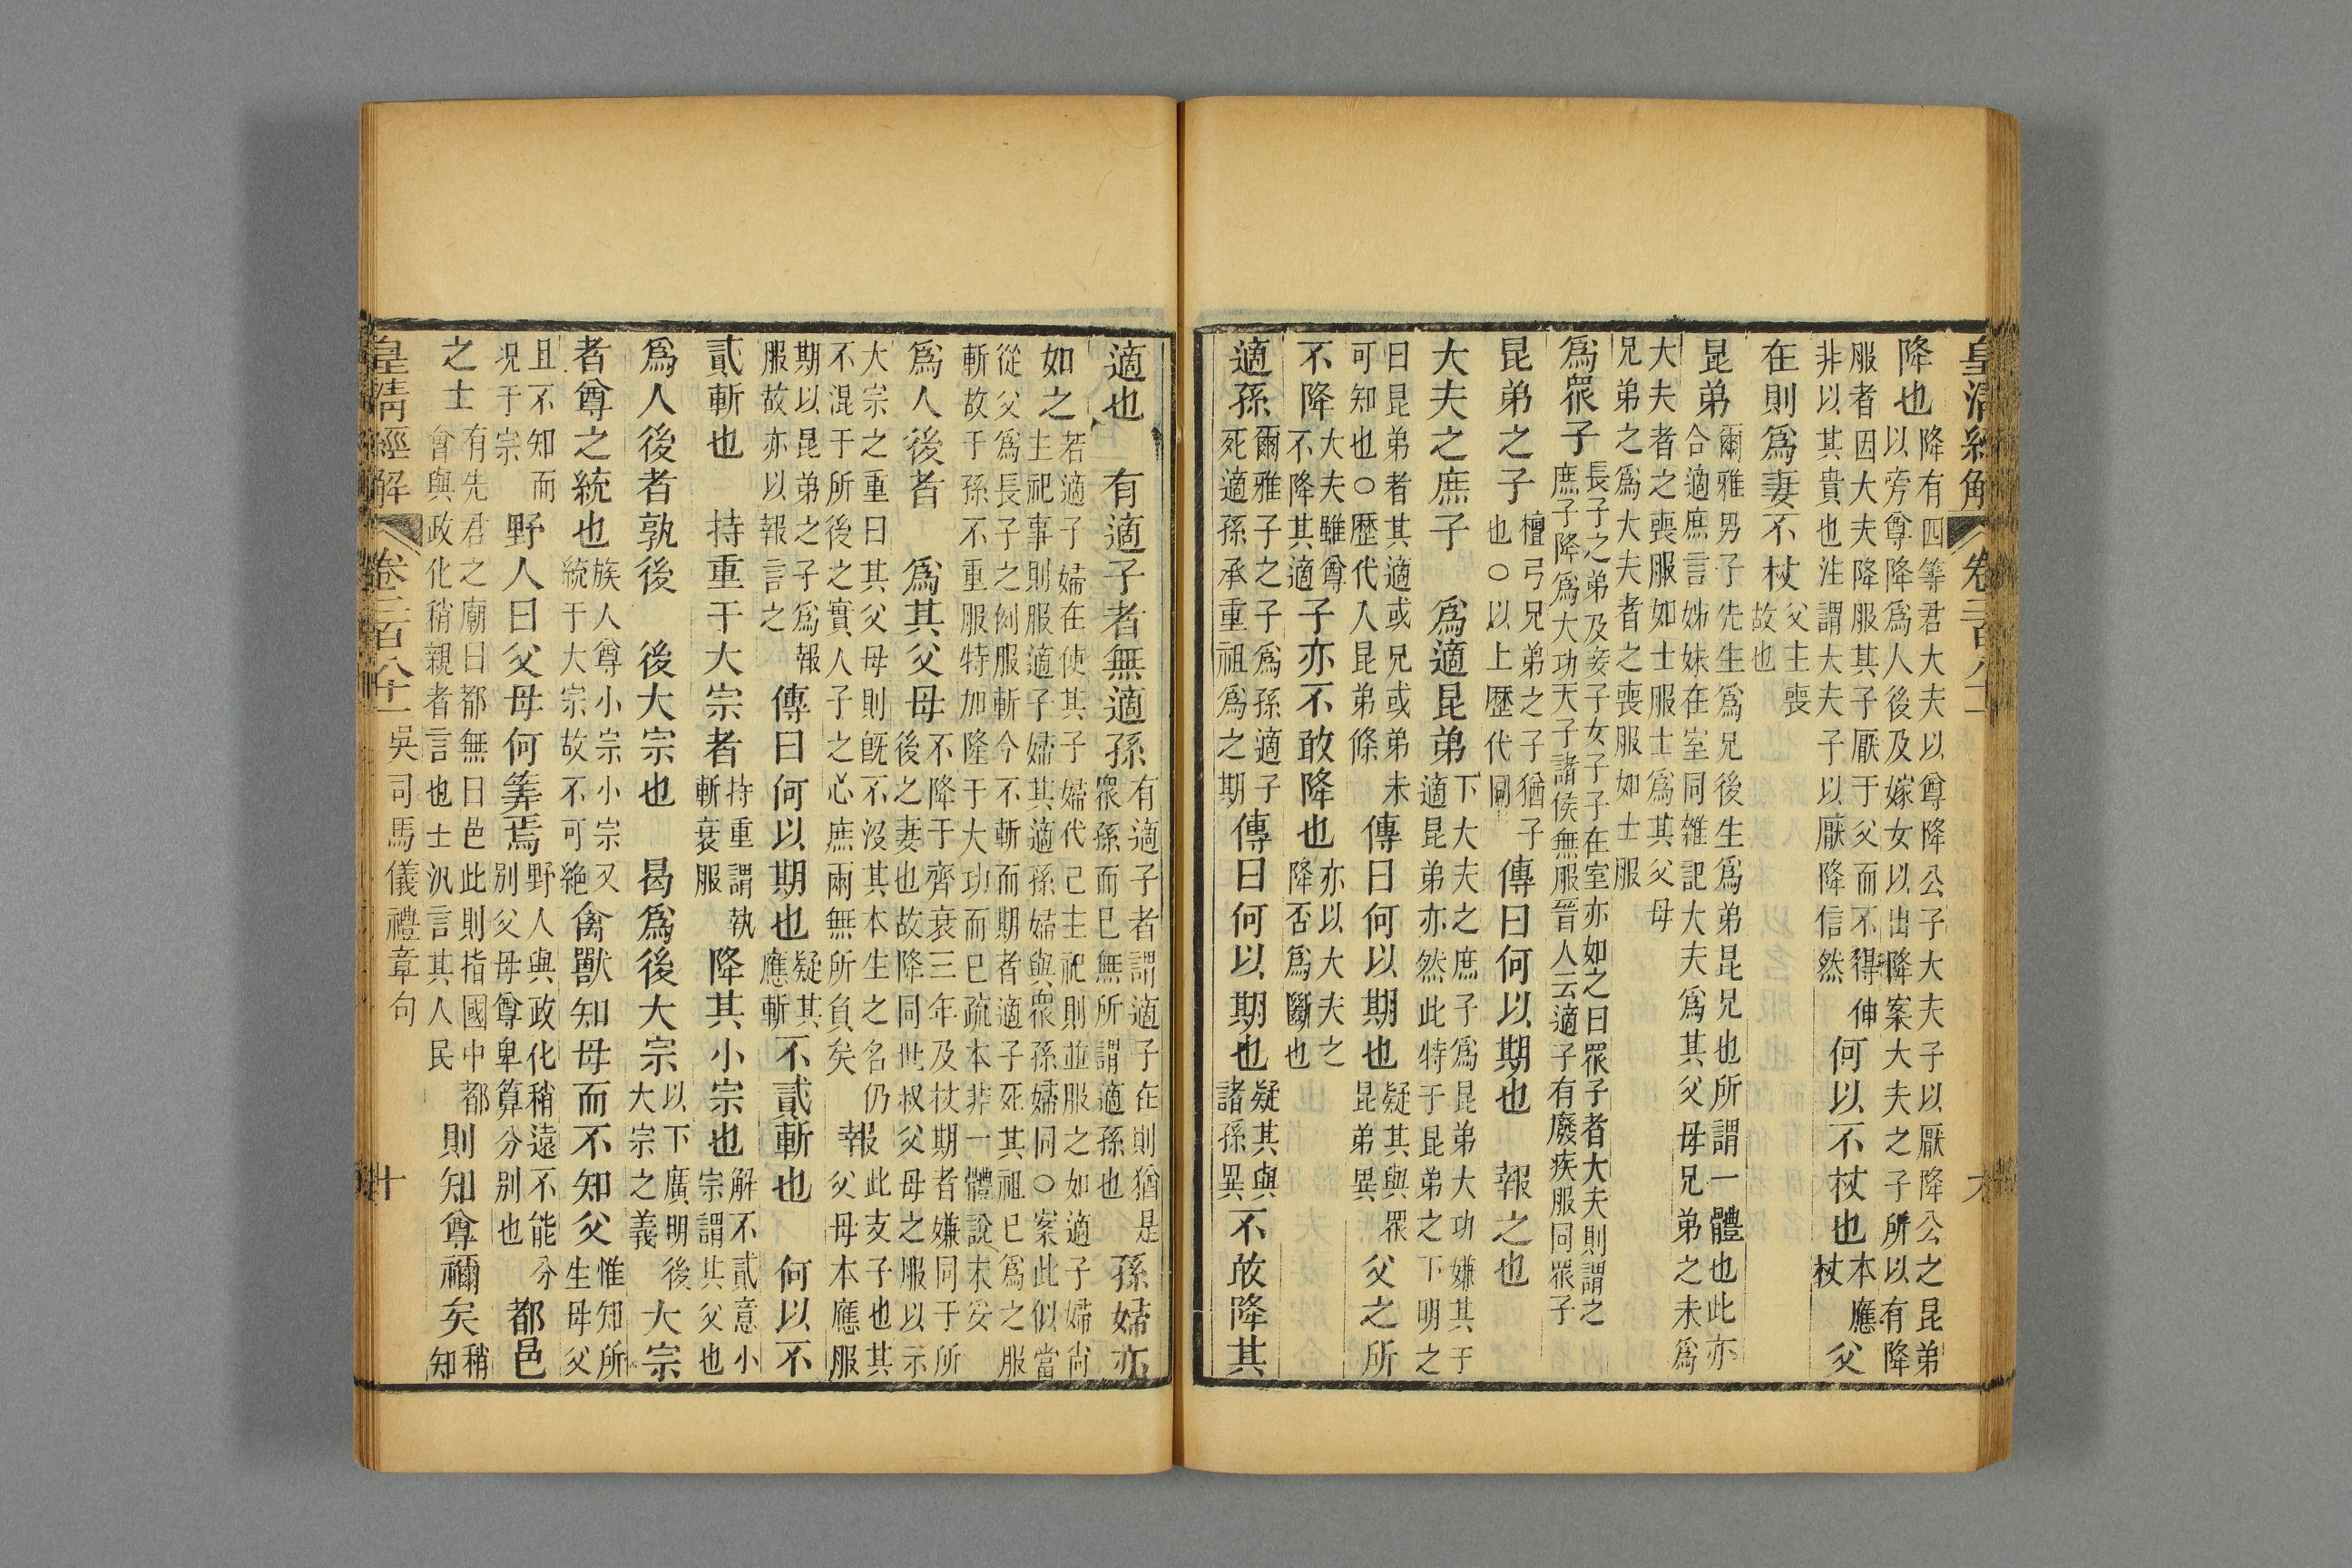 皇清經解 卷二百八十一
降也降有四等君大夫以尊降公子大夫子以厭降公之昆弟以旁尊降爲人後及嫁女以出降案大夫之子所以有降
服者因大夫降服其子厭于父而不得伸非以其貴也注謂大夫子以厭降信然何以不杖也本應杖父
在則爲妻不杖父主喪故也
昆弟爾雅男子先生爲兄後生爲弟昆兄也所謂一體也此亦合適庶言姊妹在室同雜記大夫爲其父母兄弟之未爲
大夫者之喪服如士服士爲其父母兄弟之爲大夫者之喪服如士服
爲眾子長子之弟及妾子女子子在室亦如之曰眾子者大夫則謂之庶子降爲大功天子諸侯無服晉人云適子有廢疾服同眾子
昆弟之子檀弓兄弟之子猶子也○以上歷代同傳曰何以期也 報之也
大夫之庶子 爲適昆弟下大夫之庶子爲昆弟大功嫌其于適昆弟亦然此特于昆弟之下明之
曰昆弟者其適或兄或弟未可知也○歷代人昆弟條傳曰何以期也疑其與眾昆弟異父之所
不降大夫雖尊不降其適子亦不敢降也亦以大夫之降否爲斷也
適孫爾雅子之子爲孫適子死適孫承重祖爲之期傳曰何以期也疑其與諸孫異不敢降其
適也 有適子者無適孫有適子者謂適子在則猶是眾孫而已無所謂適孫也孫婦亦
如之若適子婦在使其子婦代己主祀則並服之如適子婦尚主祀事則服適子婦其適孫婦與眾孫婦同○案此似當
從父爲長子之例服斬今不斬而期者適子死其祖已爲之服斬故于孫不重服特加隆于大功而已疏本非一體說未妥
爲人後者 爲其父母不降于齊衰三年及杖期者嫌同于所後之妻也故降同世叔父母之服以示
大宗之重曰其父母則旣不沒其本生之名仍不混于所後之實人子之心庶兩無所負矣報此支子也其父母本應服
期以昆弟之子爲報服故亦以報言之傳曰何以期也疑其應斬不貳斬也 何以不
貳斬也 持重于大宗者持重謂執斬衰服降其小宗也解不貳意小宗謂其父也
爲人後者孰後 後大宗也 曷爲後大宗以下廣明後大宗之義大宗
者尊之統也族人尊小宗小宗又統于大宗故不可絶禽獸知母而不知父惟知所生母父
且不知而況于宗野人曰父母何筭焉野人與政化稍遠不能分別父母尊卑算分別也都邑
之士有先君之廟曰都無曰邑此則指國中都會與政化稍親者言也士汎言其人民則知尊禰矣稍知
皇清經解 卷二百八十一 吳司馬儀禮章句 十